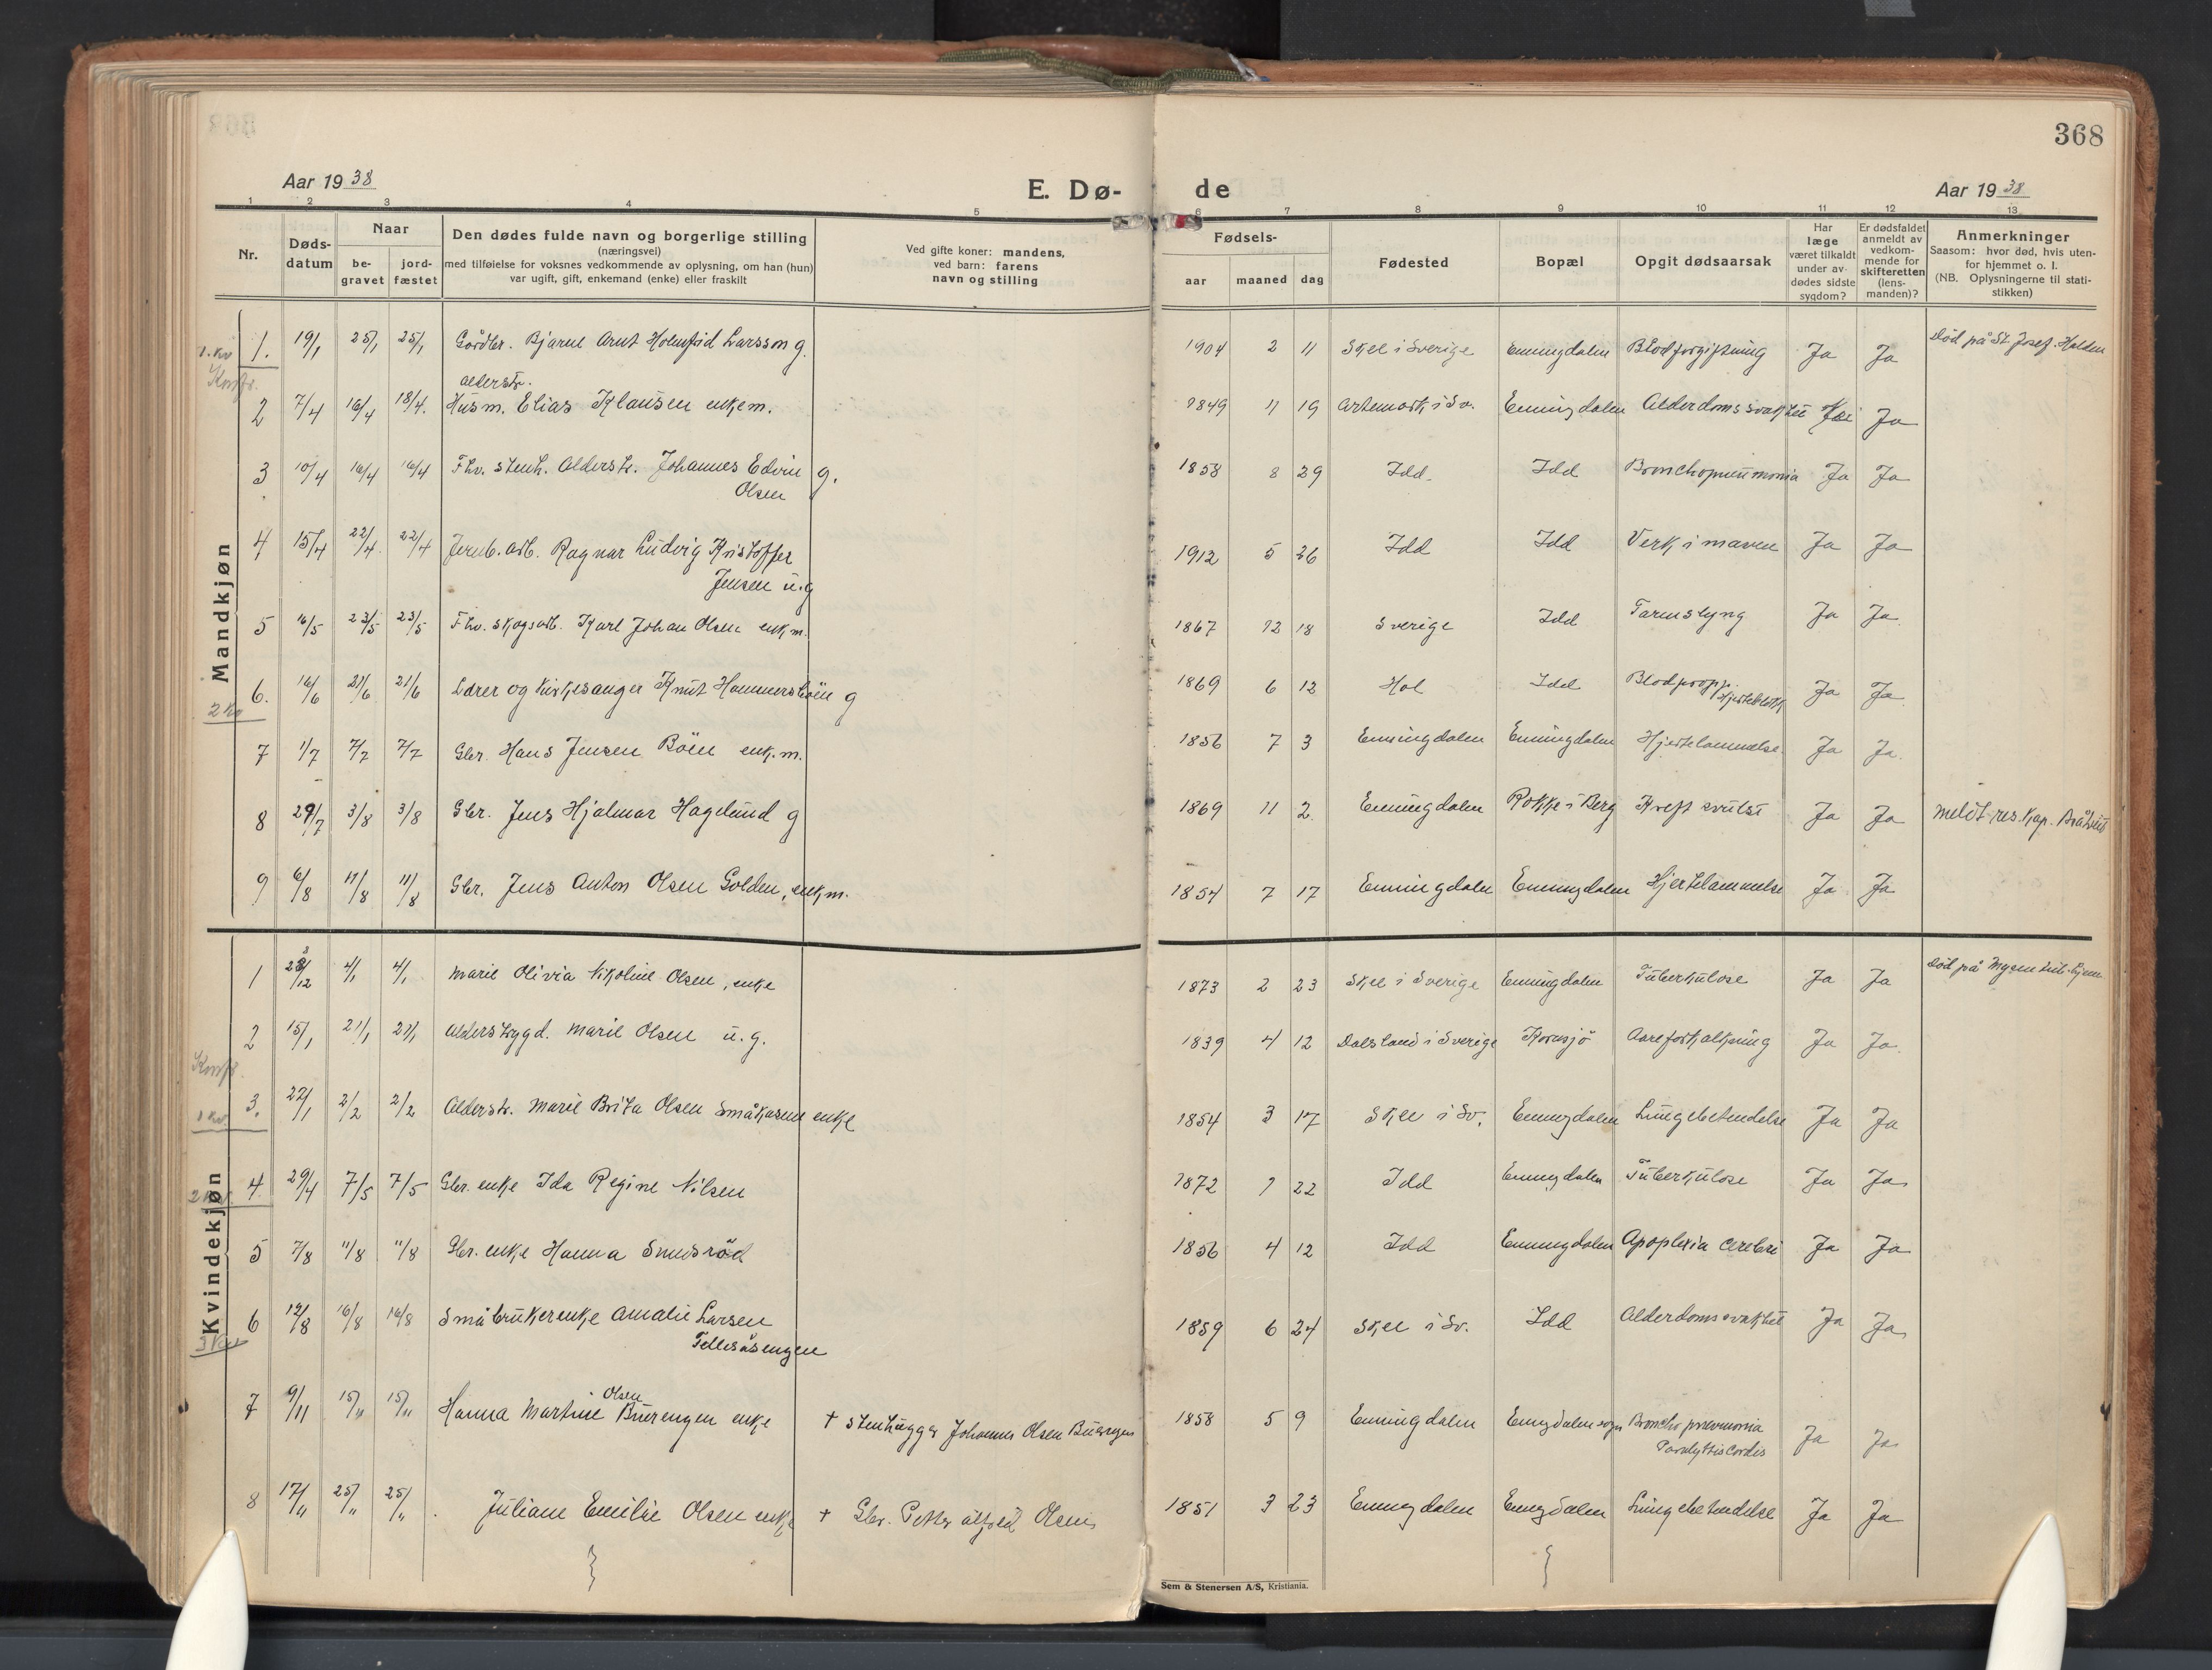 368
Aar 1938
E. Dø-
de
Aar 1938
1 2 3 4 5
6 7 8 9 10 11 12 13
Nr.
Døds-
datum
Naar
be-
gravet
jord-
fæstet
Den dødes fulde navn og borgerlige stilling
(næringsvei)
med tilføielse for voksnes vedkommende av oplysning, om han (hun)
var ugift, gift, enkemand (enke) eller fraskilt
Ved gifte koner: mandens,
ved barn: farens
navn og stilling
Fødsels-
aar maaned dag
Fødested
Bopæl
Opgit dødsaarsak
Har
læge
været tilkaldt
under av-
dødes sidste
sygdom?
Er dødsfaldet
anmeldt av
vedkom-
mende for
skifteretten
(lens-
manden)?
Anmerkninger
Saasom: hvor død, hvis uten-
for hjemmet o. l.
(NB. Oplysningerne til stati-
stikken)
Mandkjøn
1. kv
1. 19/1 25/1 25/1 Gårdbr. Bjarne Arnt Holmfrid Larsson g. 1904 2 11 Skee i Sverige Enningdalen Blodforgiftning Ja Ja Død på St. Josef. Halden
alderstr.
2 7/4 16/4 18/4. Husm. Elias Klausen enkem. 1849 11 19 Artemark i Sv. Enningdalen Alderdomssvakhet Ja
3 10/4 16/4 16/4 Fhv. stenh. Alderstr. Johannes Edvin g. 1858 8 29 Idd. Idd Bronchopneumonia Ja Ja
Olsen
4 15/4 22/4 22/4 Jernb. arb. Ragnar Ludvig Kristoffer 1912 5 26 Idd Idd Verk i maven Ja Ja
Jensen u.g
5 16/5 23/5 23/5 Fhv. skogsarb. Karl Johan Olsen enk.m. 1867 12 18 Sverige Idd Tarmslyng Ja Ja
6. 16/6 21/6 21/6 Lærer og kirkesanger Knut Hammersbøen g 1869 6 12 Hol Idd Blodpropp. Ja Ja
2 kv
7 1/7 7/7 7/7 Gbr. Hans Jensen Böen enk.m. 1856 7 3 Enningdalen Enningdalen Hjertelammelse Ja Ja.
8 29/7 3/8 3/8 Gbr. Jens Hjalmar Hagelund g 1869 11 2. Enningdalen Rokke i Berg Kreft svulst Ja Ja Meldt res. kap.
9 6/8 11/8 11/8 Gbr. Jens Anton Olsen Golden, enk.m. 1854 7 17 Enningdalen Enningdalen Hjertelammelse Ja Ja
Kvindekjøn
1 28/12 4/1 4/1 Marie Olivia Nikoline Olsen, enke 1873 2 23 Skee i Sverige Enningdalen Tuberkulose Ja Ja Død på Mysen tub. hjem
2 15/1 21/1 21/1 Alderstrygd. Marie Olsen u.g. 1839 4 12 Dalsland i Sverige Kornsjö Aareforkalkning Ja Ja.
1 kv.
3. 22/1 2/2 2/2 Alderstr. Marie Brita Olsen Småkasene enke 1854 3 17 Skee i Sv. Enningdalen Lungebetendelse Ja Ja
2 kv.
4. 29/4 7/5 7/5 Gbr. enke Ida Regine Nilsen 1872 1 22 Idd Enningdalen Tuberkulose Ja Ja
5 7/8 11/8 11/8 Gbr. enke Hanna Smedsröd 1856 4 12 Idd Enningdalen Apoplexia cerebri Ja Ja
6 12/8 16/8 16/8 Småbrukerenke Amalie Larsen 1859 6 24 Skee i Sv. Idd Alderdomssvakhet Ja Ja
3 kv
Olsen
7 9/11 15/11 15/11 Hanna Martine Buerengen enke † Stenhugger Johannes Olsen Buerengen 1858 5 9 Enningdalen Enngdalen sogn Broncho pneumonia Ja Ja
Paralysis cordis
8 17/11 25/11 25/11 Juliane Emilie Olsen enke † Gbr. Petter Alfred Olsen 1851 3 23 Enningdalen Enngdalen Lungebetendelse Ja Ja
Sem & Stenersen A/S, Kristiania.